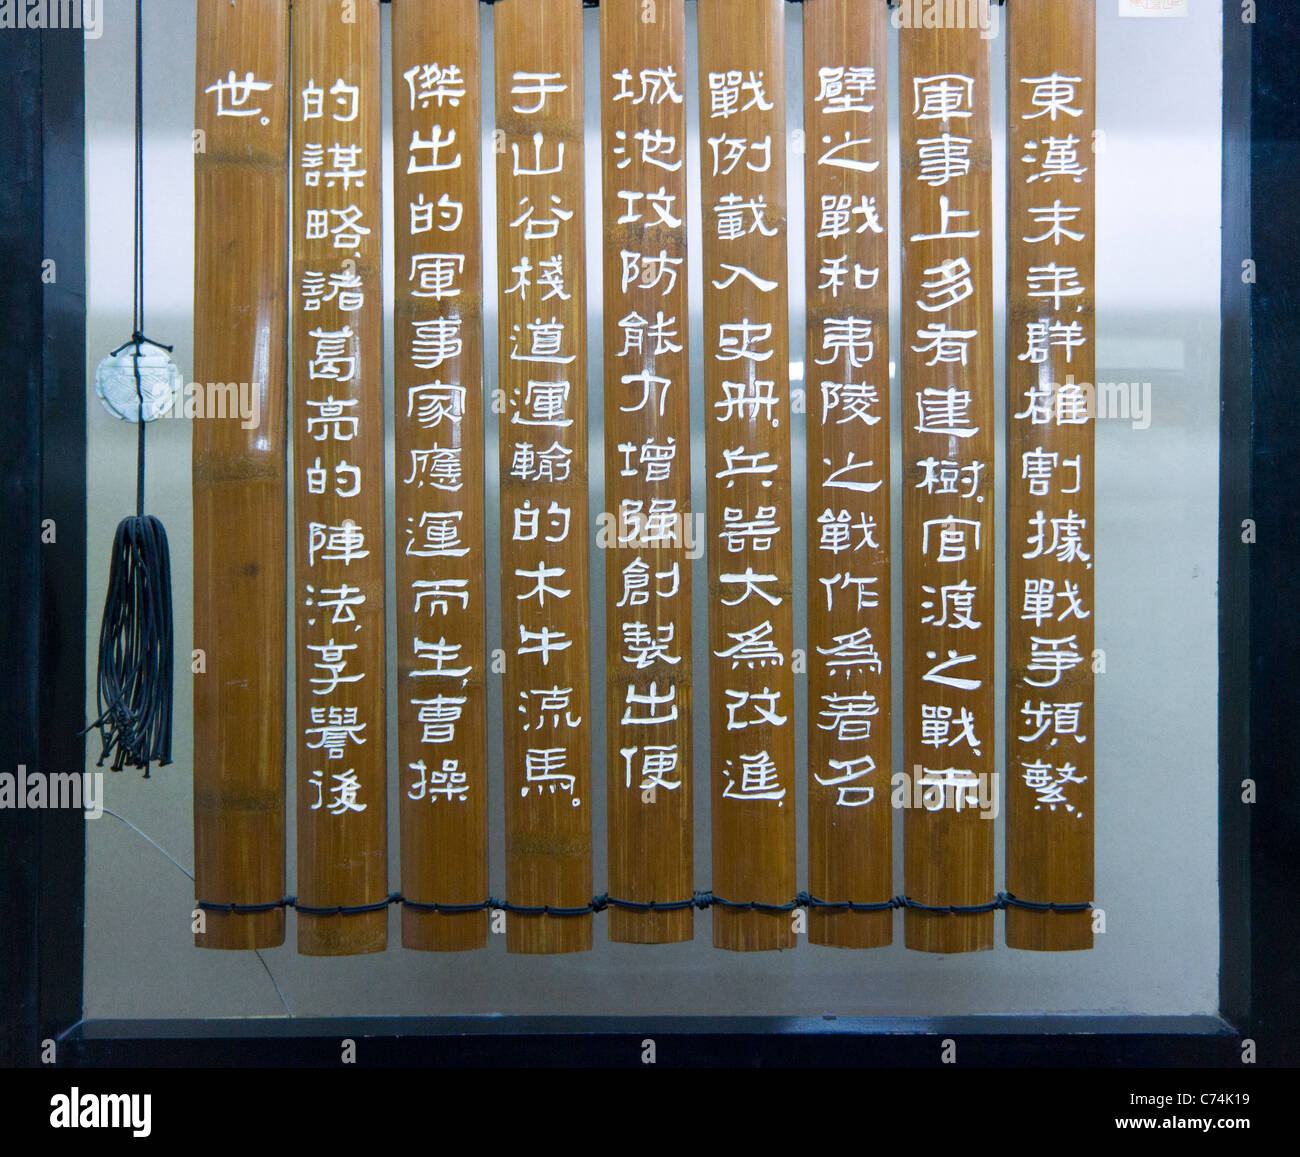 東漢末年群雄割據，戰爭頻繁，
軍事上多有建樹。官渡之戰、赤
壁之戰和夷陵之戰作為著名
戰例載入史册。兵器大為改進，
城池攻防能力增强，創製出便
于山谷棧道運輸的木牛流馬。
傑出的軍事家應運而生，曹操
的謀略，諸葛亮的陣法，享譽後
世。
alamy
Image ID: C74K19
www.alamy.com